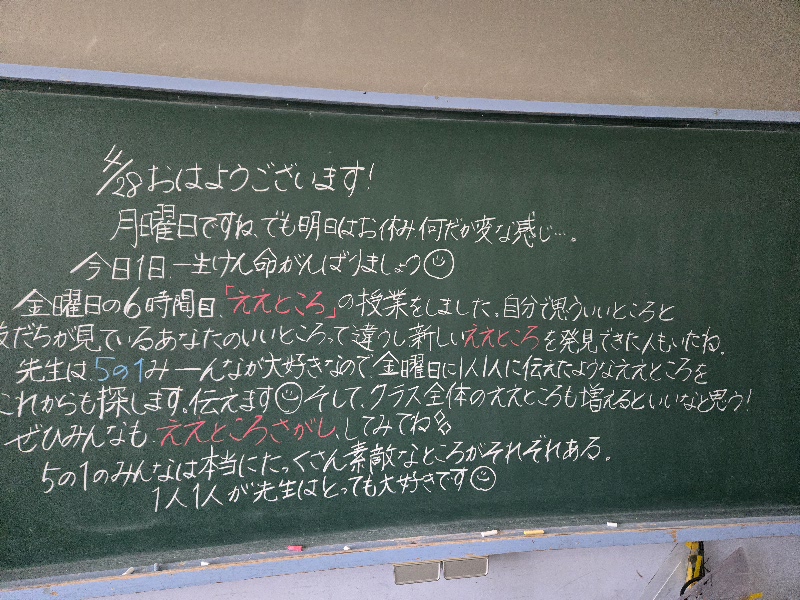 4/28 おはようございます!
月曜日ですね、でも明日はお休み何だが変な感じ…。
今日1日、一生けん命がんばりましょう☺
金曜日の6時間目、「ええところ」の授業をしました。自分で思ういいところと
友だちが見ているあなたのいいところって違うし新しいええところを発見できた人もいたね。
先生は、5の1み〜んなが大好きなので金曜日に1人1人に伝えたようなええところを
これからも探します。伝えます☺そして、クラス全体のええところも増えるといいなと思う!
ぜひみんなも、ええところさがし、してみてね
5の1のみんなは本当にたっくさん素敵なところがそれぞれある。
1人1人が先生はとっても大好きです☺